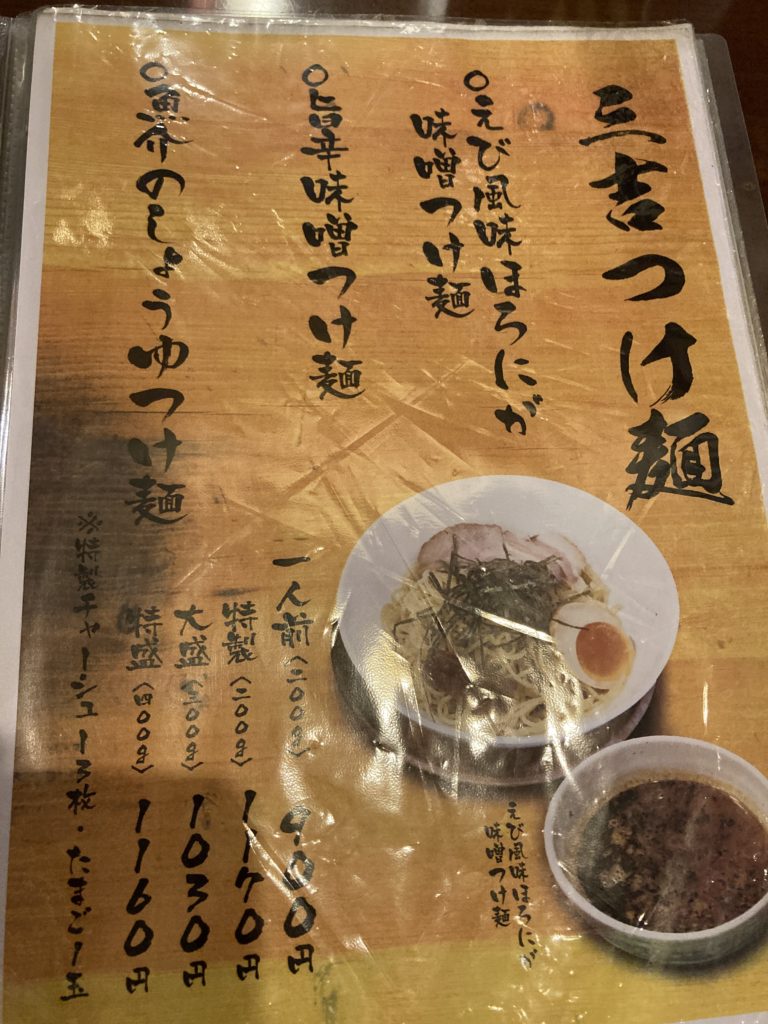 三吉つけ麺
○えび風味ほろにが
味噌つけ麺
○旨辛味噌つけ麺
○魚介のしょうゆつけ麺
一人前〈二〇〇g〉 900円
特製〈二〇〇g〉 1170円
大盛〈三〇〇g〉 1030円
特盛〈四〇〇g〉 1160円
※特製チャーシュー3枚・たまご1玉
えび風味ほろにが
味噌つけ麺